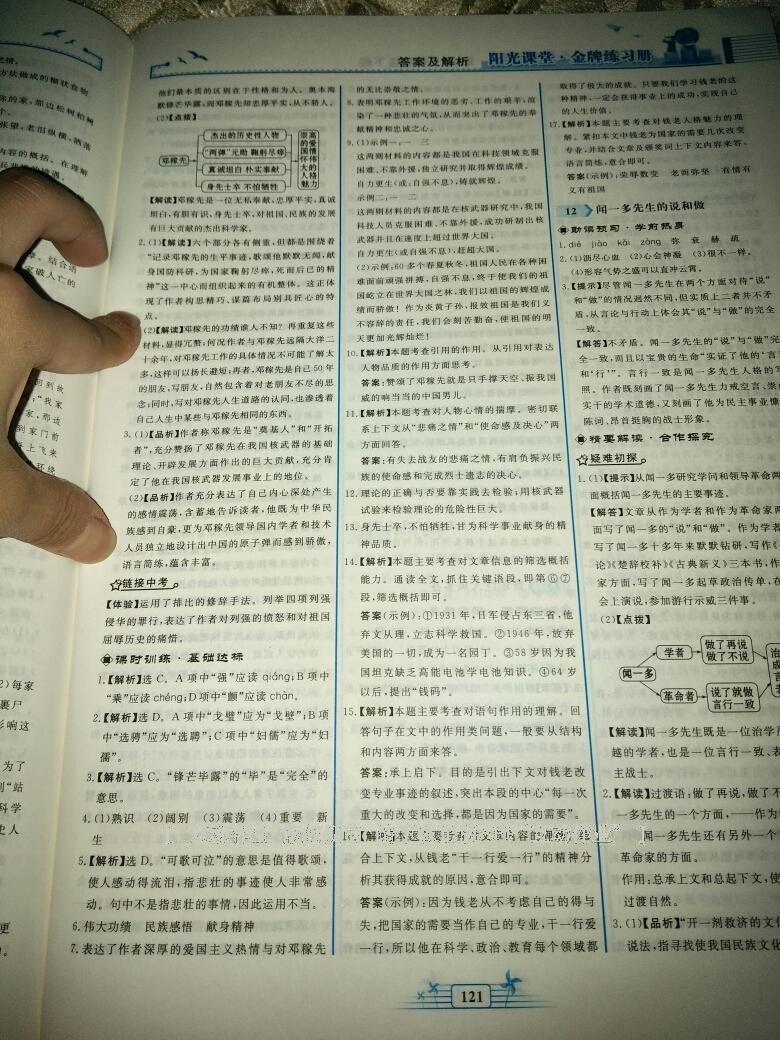 答案及解析
阳光课堂·金牌练习册
他们最本质的区别在于性格和为人。奥本海
默锋芒毕露,而邓稼先却忠厚平实,从不骄人。
(2)【点拨】
邓稼先
杰出的历史性人物
“两弹”元勋 鞠躬尽瘁
真诚坦白 朴实奉献
身先士卒 不怕牺牲
崇高的爱国情怀伟大的人格魅力
【解读】邓稼先是一位无私奉献,忠厚平实,真诚
坦白,有胆有识,身先士卒,对祖国、民族的发展
有巨大贡献的杰出科学家。
2.(1)【解读】六个部分各有侧重,但都是围绕着
“记录邓稼先的生平事迹,歌颂他默默无闻,献
身国防科研,为国家鞠躬尽瘁,死而后已的精
神”这一中心而组织起来的有机整体。这正体
现了作者构思精巧、谋篇布局别具匠心的特
点。
(2)【解读】邓稼先的功绩谁人不知?再重复这些
材料,显得冗赘;何况作者与邓稼先远隔大洋二
十余年,对邓稼先工作的具体情况不可能了解太
多,这样可以扬长避短;再者,邓稼先是自己50年
的朋友,写朋友,自然包含着对老朋友不尽的思
念;同时,写对邓稼先人生道路的认同,也渗透着
自己人生中某些与邓稼先相同的东西。
3.(1)【品析】作者称邓稼先是“奠基人”和“开拓
者”,充分赞扬了邓稼先在我国核武器的基础
理论、开辟发展方面作出的巨大贡献,充分肯
定了他在我国核武器发展事业上的地位。
(2)【品析】作者充分表达了自己内心深处产生
的感情震荡,含蓄地告诉读者,他既为中华民
族感到自豪,更为邓稼先领导国内学者和技术
人员独立地设计出中国的原子弹而感到骄傲,
语言简练,蕴含丰富。
链接中考
【体验】运用了排比的修辞手法。列举四项列强
侵华的罪行,表达了作者对列强的愤怒和对祖国
屈辱历史的痛惜。
课时训练·基础达标
1.【解析】选C。A项中“强”应读qiáng;B项中
“乘”应读chéng;D项中“颤”应读chàn。
2.【解析】选D。A项中“戈璧”应为“戈壁”;B项
中“选骋”应为“选聘”;C项中“妇儒”应为“妇
孺”。
3.【解析】选C。“锋芒毕露”的“毕”是“完全”的
意思。
4.(1)熟识 (2)阔别 (3)震荡 (4)重要 新
生
5.【解析】选D。“可歌可泣”的意思是值得歌颂,
使人感动得流泪,指悲壮的事迹使人非常感
动。句中不是指悲壮的事情,因此运用不当。
6.伟大功绩 民族感悟 献身精神
7.表达了作者深厚的爱国主义热情与对邓稼先
的无比崇敬之情。
8.表明邓稼先工作环境的恶劣、工作的艰辛,渲
染了一种悲壮的气氛,从而突出了邓稼先的奉
献精神和忠诚之心。
9.(1)示例一,一 三
这两则材料的内容都是我国在科技领域克服
困难、不靠外援,独立研究并取得辉煌成绩。
自力更生(或:自强不息),铸就辉煌。
示例二,一 二
这两则材料的内容都是在核武器研究中,我国
科技人员克服困难、不靠外援,成功研制出核
武器并且在速度上超过世界大国。
自力更生(或自强不息),赶超大国。
(2)示例:60多个春夏秋冬,祖国人民在各种困
难面前顽强拼搏,自强不息,终于使我们的祖
国屹立在世界大国之林,我们以祖国的辉煌成
绩而骄傲!作为炎黄子孙,报效祖国是我们义
不容辞的责任,我们会刻苦勤奋,使祖国的明
天更加光辉灿烂!
10.【解析】本题考查引用的作用。从引用对表达
人物品质的作用方面思考。
答案:赞颂了邓稼先就是只手撑天空、振我国
威的响当当的中国男儿。
11.【解析】本题考查对人物心情的揣摩。密切联
系上下文从“悲痛之情”和“使命感及决心”两
方面回答。
答案:有失去战友的悲痛之情,有肩负振兴民
族的使命感和完成烈士遗志的决心。
12.理论的正确与否要靠实践去检验;用核武器
试验来检验理论的危险性巨大。
13.身先士卒,不怕牺牲,甘为科学事业献身的精
神品质。
14.【解析】本题主要考查对文章信息的筛选概括
能力。通读全文,抓住关键语段,即第⑥⑦
段,筛选概括即可。
答案(示例):①1931年,日军侵占东三省,他
弃文从理,立志科学救国。②1946年,放弃
美国的一切,成为一名园丁。③58岁因为我
国坦克缺乏高能电池学电池知识。④64岁
以后,提出“钱码”。
15.【解析】本题主要考查对语句作用的理解。回
答句子在文中的作用类问题,一般要从结构
和内容两方面来答。
答案:承上启下。目的是引出下文对钱老改
变专业事迹的叙述,突出本段的中心“每一次
重大的改变和选择,都是因为国家的需要”。
【解析】本题主要考查对文本内容的理解。结
合上下文,从钱老“干一行爱一行”的精神分
析其获得成就的原因,意合即可。
答案(示例):因为钱老从不考虑自己的得与
失,把国家的需要当作自己的专业,干一行爱
一行,所以他在科学、政治、教育每个领域都
取得了极大的成就。只要我们学习钱老的这
种精神,一定会获得事业上的成功,实现自己
的人生价值。
17.【解析】本题主要考查对钱老人格魅力的理
解。紧扣本文中钱老为国家的需要几次改变
专业,并结合文章及颁奖词上下文内容来答,
语言简练,意合即可。
答案(示例):荣辱数变 老而弥坚 有情有
义有祖国
12 闻一多先生的说和做
勤读预习·学前热身
1.dié jiào kǎi zàng 弥 衰 赫 疏
2.(1)沥尽心血 (2)心会神凝 (3)很不一样。
(4)形容气势之盛可以直冲云霄。
3.【提示】尽管闻一多先生在两个方面对待“说”
和“做”的情况迥然不同,但实质上二者并不矛
盾,从言论与行动上体会其“说”与“做”的完全
一致。
【解答】不矛盾。闻一多先生的“说”与“做”完
全一致,而且以宝贵的生命“实证了他的‘言
和‘行’”。言行一致是闻一多先生人格的写
照。作者既刻画了闻一多先生力戒空言、崇尚
实干的学术道德,又刻画了他为民主事业慷
陈词、昂首挺胸的战士形象。
精要解读·合作探究
疑难初探
1.(1)【提示】从闻一多研究学问和领导革命两
面概括闻一多先生的主要事迹。
【解答】文章从作为学者和作为革命家两
面写了闻一多的“说”和“做”。作为学者
写了闻一多十多年来默默钻研,写作《
论》《楚辞校补》《古典新义》三本书,作
家方面,写了闻一多起草政治传单,在
会上演说,参加游行示威三件事。
(2)【点拨】
闻一多
学者
做了再说
做了不说
革命者
说了就做
言行一致
【解读】闻一多先生既是一位治学严
越的学者,也是一位言行一致、表
主战士。
2.【解读】过渡语:做了再说,做了不
一多先生的一个方面,——作为
闻一多先生还有另外一个
革命家的方面。
作用:总承上文和总起下文,使
过渡自然。
3.(1)【品析】“开一剂救济的文化
说法,指寻找使我国民族文化
121